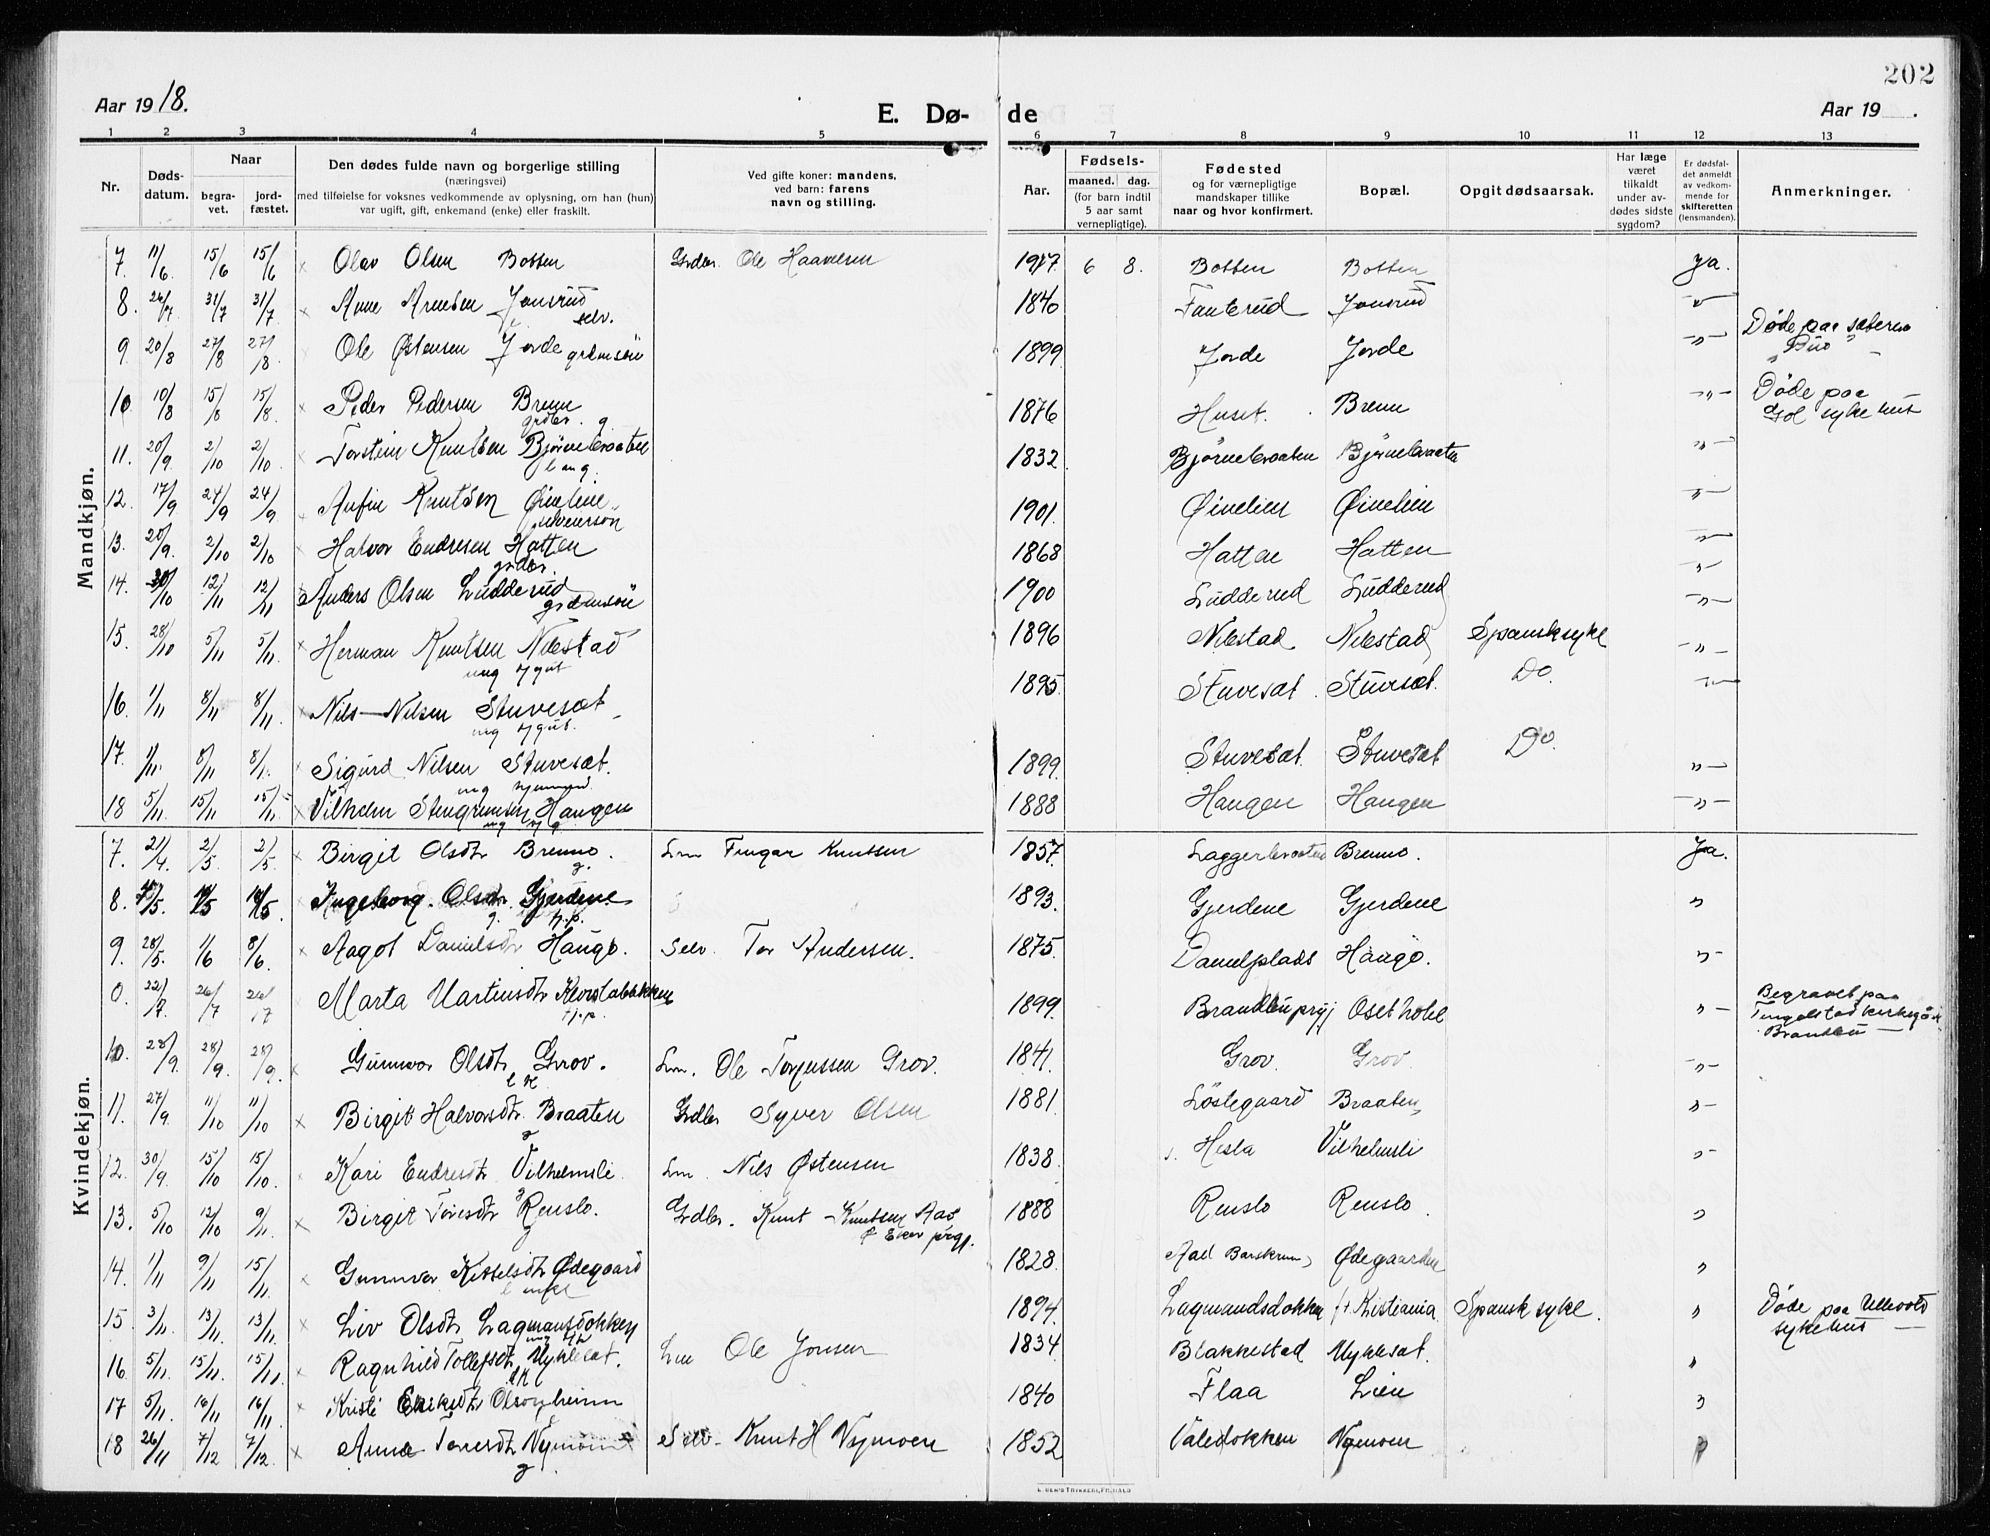 202
Aar 1918.
E. Dø- de
Aar 19 .
1 2 3 4 5 6 7 8 9 10 11 12 13
Nr.
Døds-
datum.
Naar
begra-
vet.
jord-
fæstet.
Den dødes fulde navn og borgerlige stilling
(næringsvei)
med tilføielse for voksnes vedkommende av oplysning, om han (hun)
var ugift, gift, enkemand (enke) eller fraskilt.
Ved gifte koner: mandens,
ved barn: farens
navn og stilling.
Aar.
Fødsels-
maaned. dag.
(for barn indtil
5 aar samt
vernepligtige).
Fødested
og for værnepligtige
mandskaper tillike
naar og hvor konfirmert.
Bopæl.
Opgit dødsaarsak.
Har læge
været
tilkaldt
under av-
dødes sidste
sygdom?
Er dødsfal-
det anmeldt
av vedkom-
mende for
skifteretten
(lensmanden).
Anmerkninger.
Mandkjøn.
7. 11/6 15/6 15/6 × Olav Olsen Botten Grdbr. Ole Haavelsen 1917 6 8. Botten Botten Ja.
8. 31/7 31/7 × Arne Arnesen Jonsrud 1840 Fauterud Jonsrud -"-
selv.
9. 20/8 27/8 27/8 Ole Østensen Jorde grdmsøn 1899 Jorde Jorde -"- Døde paa sæteren
"Buo"
10 10/8 15/8 15/8 × Peder Pedersen Brenn 1876 Huset. Brenn -"- Døde paa
grdbr. g. Gol sykehus
11. 20/9. 2/10 2/10 × Torstein Knutsen Bjørnebraaten 1832 Bjørnebraaten Bjørnebraaten -"-
12. 17/9 24/9 24/9 Knutsen Øinelien 1901. Øinelien Øinelien -"-
13. 20/9. 2/10 2/10 × Halvor Endresen Hatten 1868 Hatten Hatten -"-
grdbr.
14. 30/10 12/11 12/11 Anders Olsen Ludderud 1900 Ludderud Ludderud -"-
grdmsøn
15. 28/10 5/11 5/11. × Herman Knutsen Nibstad 1896 Nibstad Nibstad Spansksyke -"-
ung ygut
16. 1/11 8/11 8/11. × Nils Nilsen Stuvesæt 1895 Stuvesæt Stuvesæt. Do. -"-
ung ygut.
17. 1/11. 8/11 8/11 × Sigurd Nilsen Stuvesæt. 1899 Stuvesæt Stuvesæt Do. -"-
18 5/11. 15/11 15/11. × Vilhelm Stengrimsen Haugen 1888 Haugen Haugen -"-
Kvindekjøn.
7. 21/4. 2/5 2/5 × Birgit Olsdtr Brenno. Lm Fingar Knutsen 1857. Laggerbraaten Brenno. Ja.
g.
8. × Ingeborg Olsdtr Gjerdene 1893. Gjerdene Gjerdene "
9. 28/5. 1/6 8/6. × Aagot Danielsdtr Haugo. Selv. Tor Andersen. 1875 Danielplads Haugo. -"-
0. 22/7. 24/7 × Marta Martinsdtr 1899 Brandbu prgj Oset hotel -"- Begravet paa
Tingelstad kirkegård
Brandbu
10. 28/9. 28/9. 28/9. Gunvor Olsdtr Grov. Lm. Ole Torjussen Grov. 1841. Grov. Grov -"-
11. 27/9. 11/10 11/10 × Birgit Halvorsdtr. Braaten Grdbr Syver Olsen 1881 Løstegaard Braaten -"-
g
12. 30/9. 15/10 15/10. × Kari Endresdtr Vilhelmsli Lm. Nils Østensen 1838. Hesla Vilhelmsli -"-
g
13. 5/10 12/10 9/11. × Birgit Toresdtr Renslo. Grdbr. Knut Knutsen Aas 1888 Renslo Renslo. "
g Ø Eker prgj.
14. 1/11 9/11 15/11. × Gunvor Kittelsdtr Ødegaard 1828. Aal Ødegaarden "
15. 3/11. 13/11. 13/11. × Liv Olsdtr Lagmansdokken 1894. Lagmandsdokken f. t. Kristiania Spansksyke. " Døde paa Ullevold
sykehus
16. 5/11. 15/11. 15/11. × Ragnhild Tollefsdtr Myklesæt. Lm Ole Jonsen 1834 Blakkestad Myklesæt. "
17 5/11. 16/11 16/11. × Kristi Eriksdtr Olsonheim 1840 Flaa Lien "
18 26/11 7/12 7/12. × Anne Toresdtr Nymoen Selv. Knut H Nymoen 1852 Valedokken Nymoen "
g.